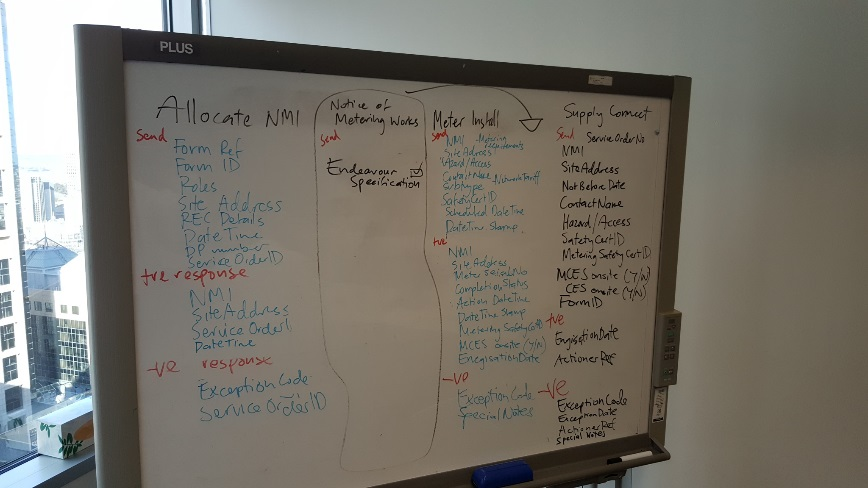 PLUS
Allocate NMI
send
Form Ref
Form ID
Roles
Site Address
REC Details
DateTime
DP number
Service OrderID
+ve response
NMI
SiteAddress
Service Order
DateTime
-ve response
ExceptionCode
Service OrderID
Notice of
Metering Works
send
Endeavour
Specification
Meter Install
send
NMI - Metering
requirements
Site Address
Hazard/Access
Contact Name
Network Tariff
Subtype
SafetyCertID
Scheduled DateTime
DateTime Stamp
+ve
NMI
Site Address
Meter Serial No
Completion Status
Action DateTime
DateTime Stamp
Metering SafetyCertID
MCES onsite (Y/N)
EnergisationDate
-ve
Exception Code
Special Notes
Supply Connect
Send
Service Order No
NMI
SiteAddress
Not Before Date
ContactName
Hazard/Access
SafetyCertID
Metering Safety Cert ID
MCES onsite (Y/N)
CES onsite (Y/N)
FormID
+ve
Actioner Ref
-ve
ExceptionCode
ExceptionDate
Actioner Ref
Special Notes